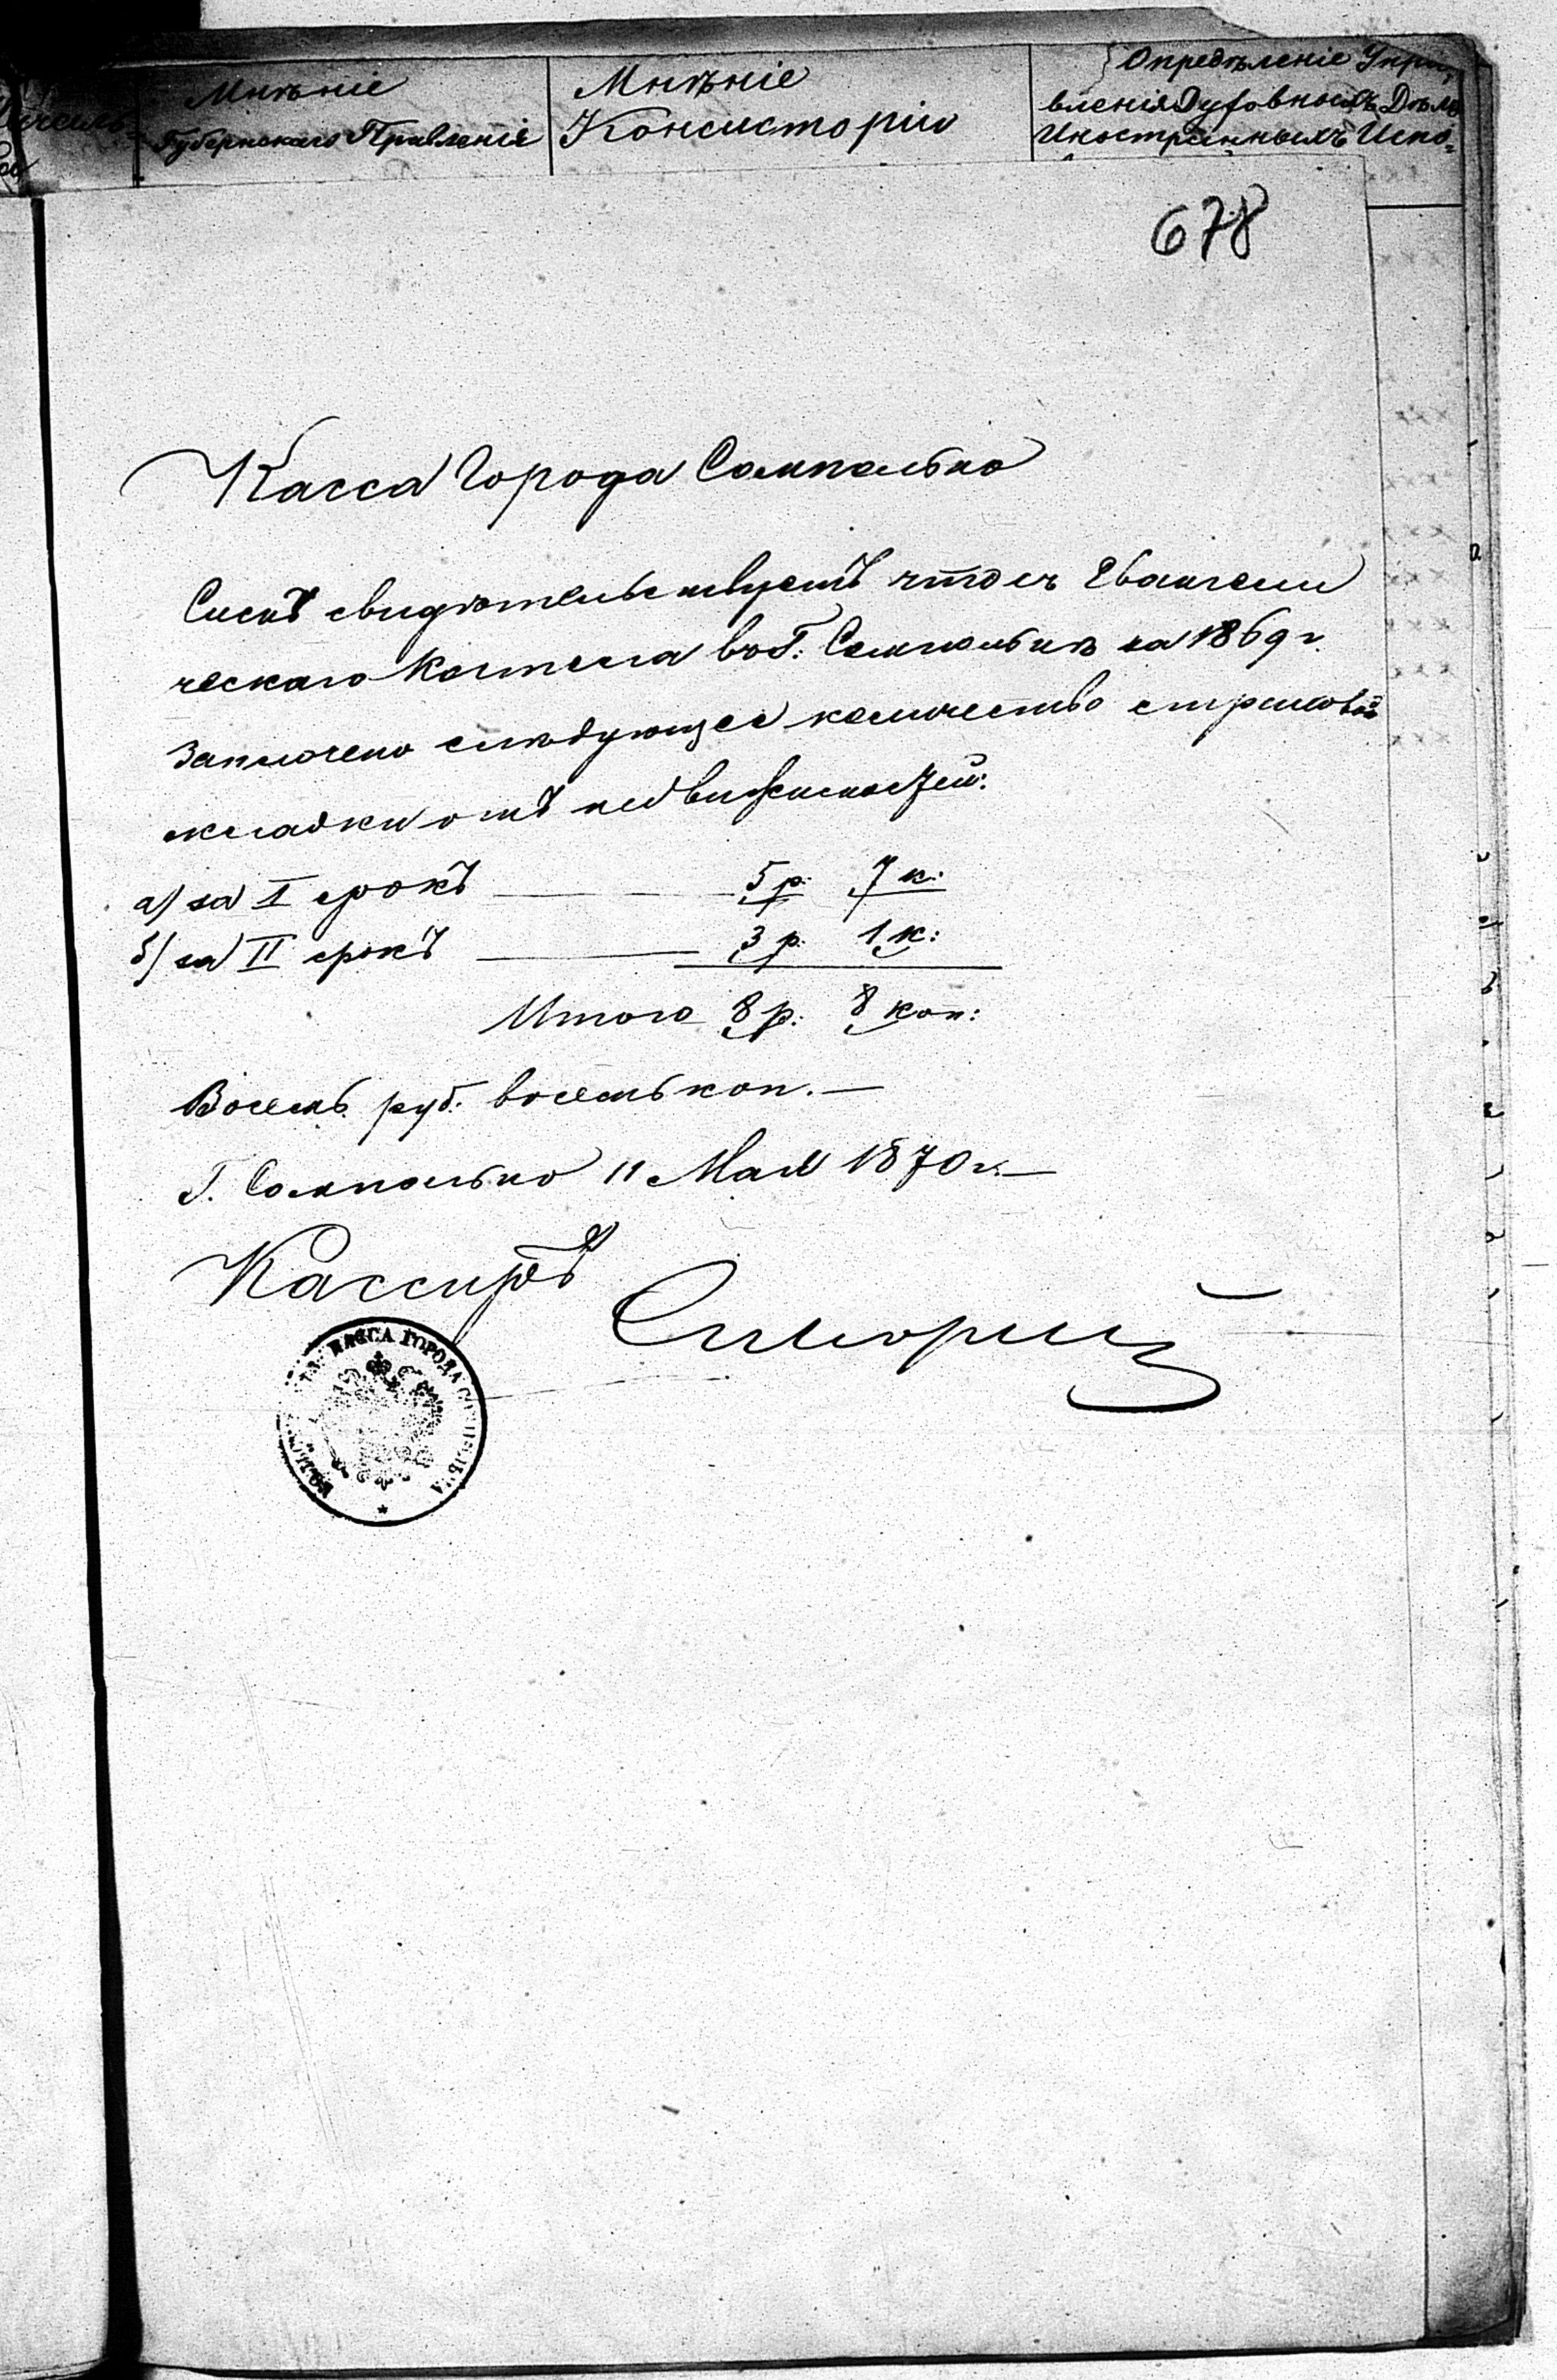 Мнѣніе
Губернскаго Правленія
Мнѣніе
Консисторіи
Опредѣленіе Упра-
вленія Духовныхъ Дѣлъ
Иностранныхъ Испо-
678
Касса Города Сомпольно
Симъ свидѣтельствуетъ что съ Евангели
ческаго Костела въ Г: Сомпольнѣ за 1869 г.
Заплочено слѣдующее количество страховой
складки отъ недвижимостей:
а) за I срокъ 5 р. 7 к:
б) за II срокъ 3 р. 1 к:
Итого 8 р: 8 коп:
Восемь руб. восемь коп. —
Г. Сомпольно 11 Мая 1870 г. —
Кассиръ
КАССА ГОРОДА